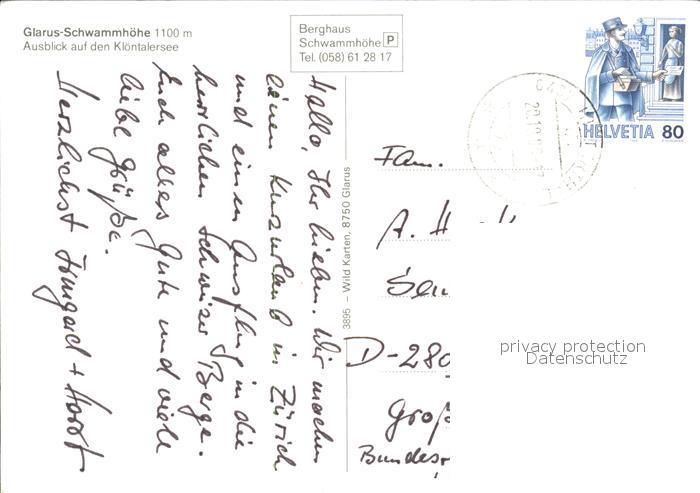 Glarus-Schwammhöhe 1100 m
Ausblick auf den Klöntalersee
Berghaus
Schwammhöhe P
Tel. (058) 61 28 17
Hallo, Ihr Lieben. Wir machen
einen Kurzurlaub in Zürich
und einen Ausflug in die
herrlichen Schweizer Berge.
Euch alles Gute und viele
liebe Grüße.
Herzlichst Irmgard + Horst
3895 – Wild Karten, 8750 Glarus
HELVETIA 80
Fam.
A. H
D-280
Groß
Bundesr
privacy protection
Datenschutz